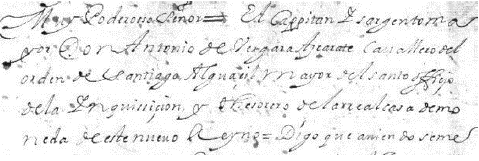 Muy Poderoso señor = El Cappitan y sargento ma
yor Don Antonio de Vergara Azcarate Cavallero del
orden de Santiago Alguacil mayor del santo offiçio
de la Ynquiçiçion y thesorero de la rreal casa de mo
neda de este nuevo Reyno = Digo que aviendoseme